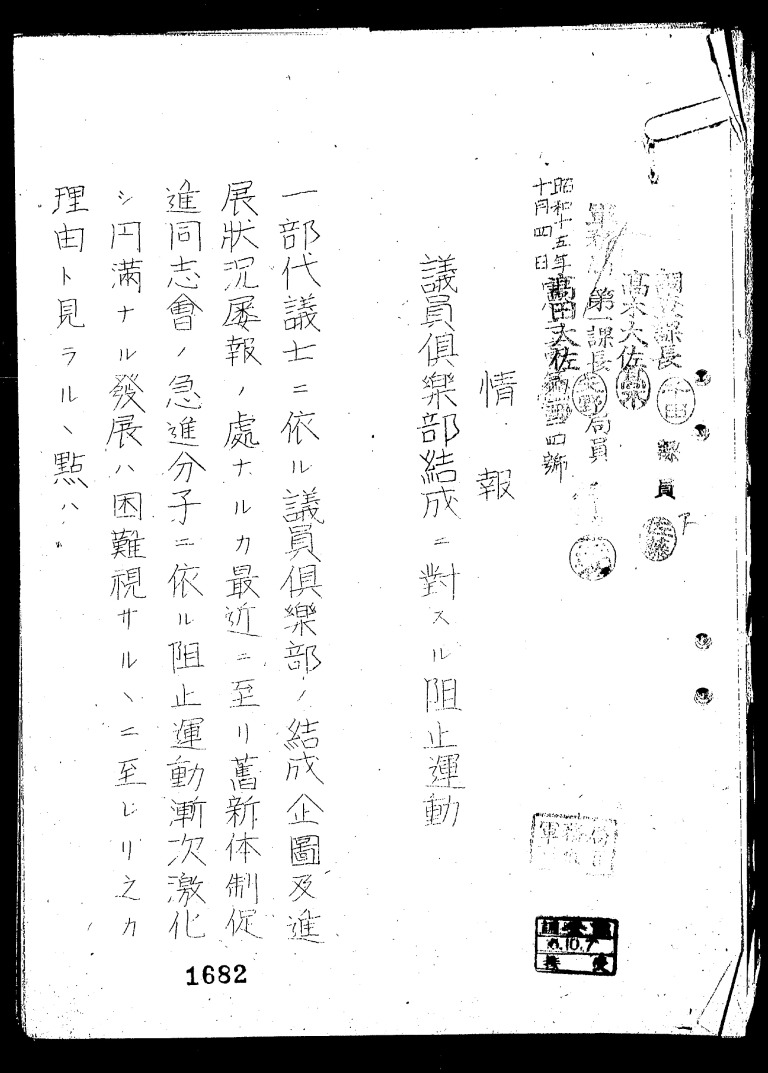 調査課長
課員
高木大佐
軍務局
第一課長
局員
高田大佐
昭和十五年
十月四日
四號
情報
議員倶樂部結成ニ對スル阻止運動
一部代議士ニ依ル議員倶樂部ノ結成企圖及進
展狀況屡報ノ處ナルカ最近ニ至リ舊新体制促
進同志會ノ急進分子ニ依ル阻止運動漸次激化
シ円滿ナル發展ハ困難視サルヽニ至レリ之カ
理由ト見ラルヽ點ハ
軍務
10.7
1682